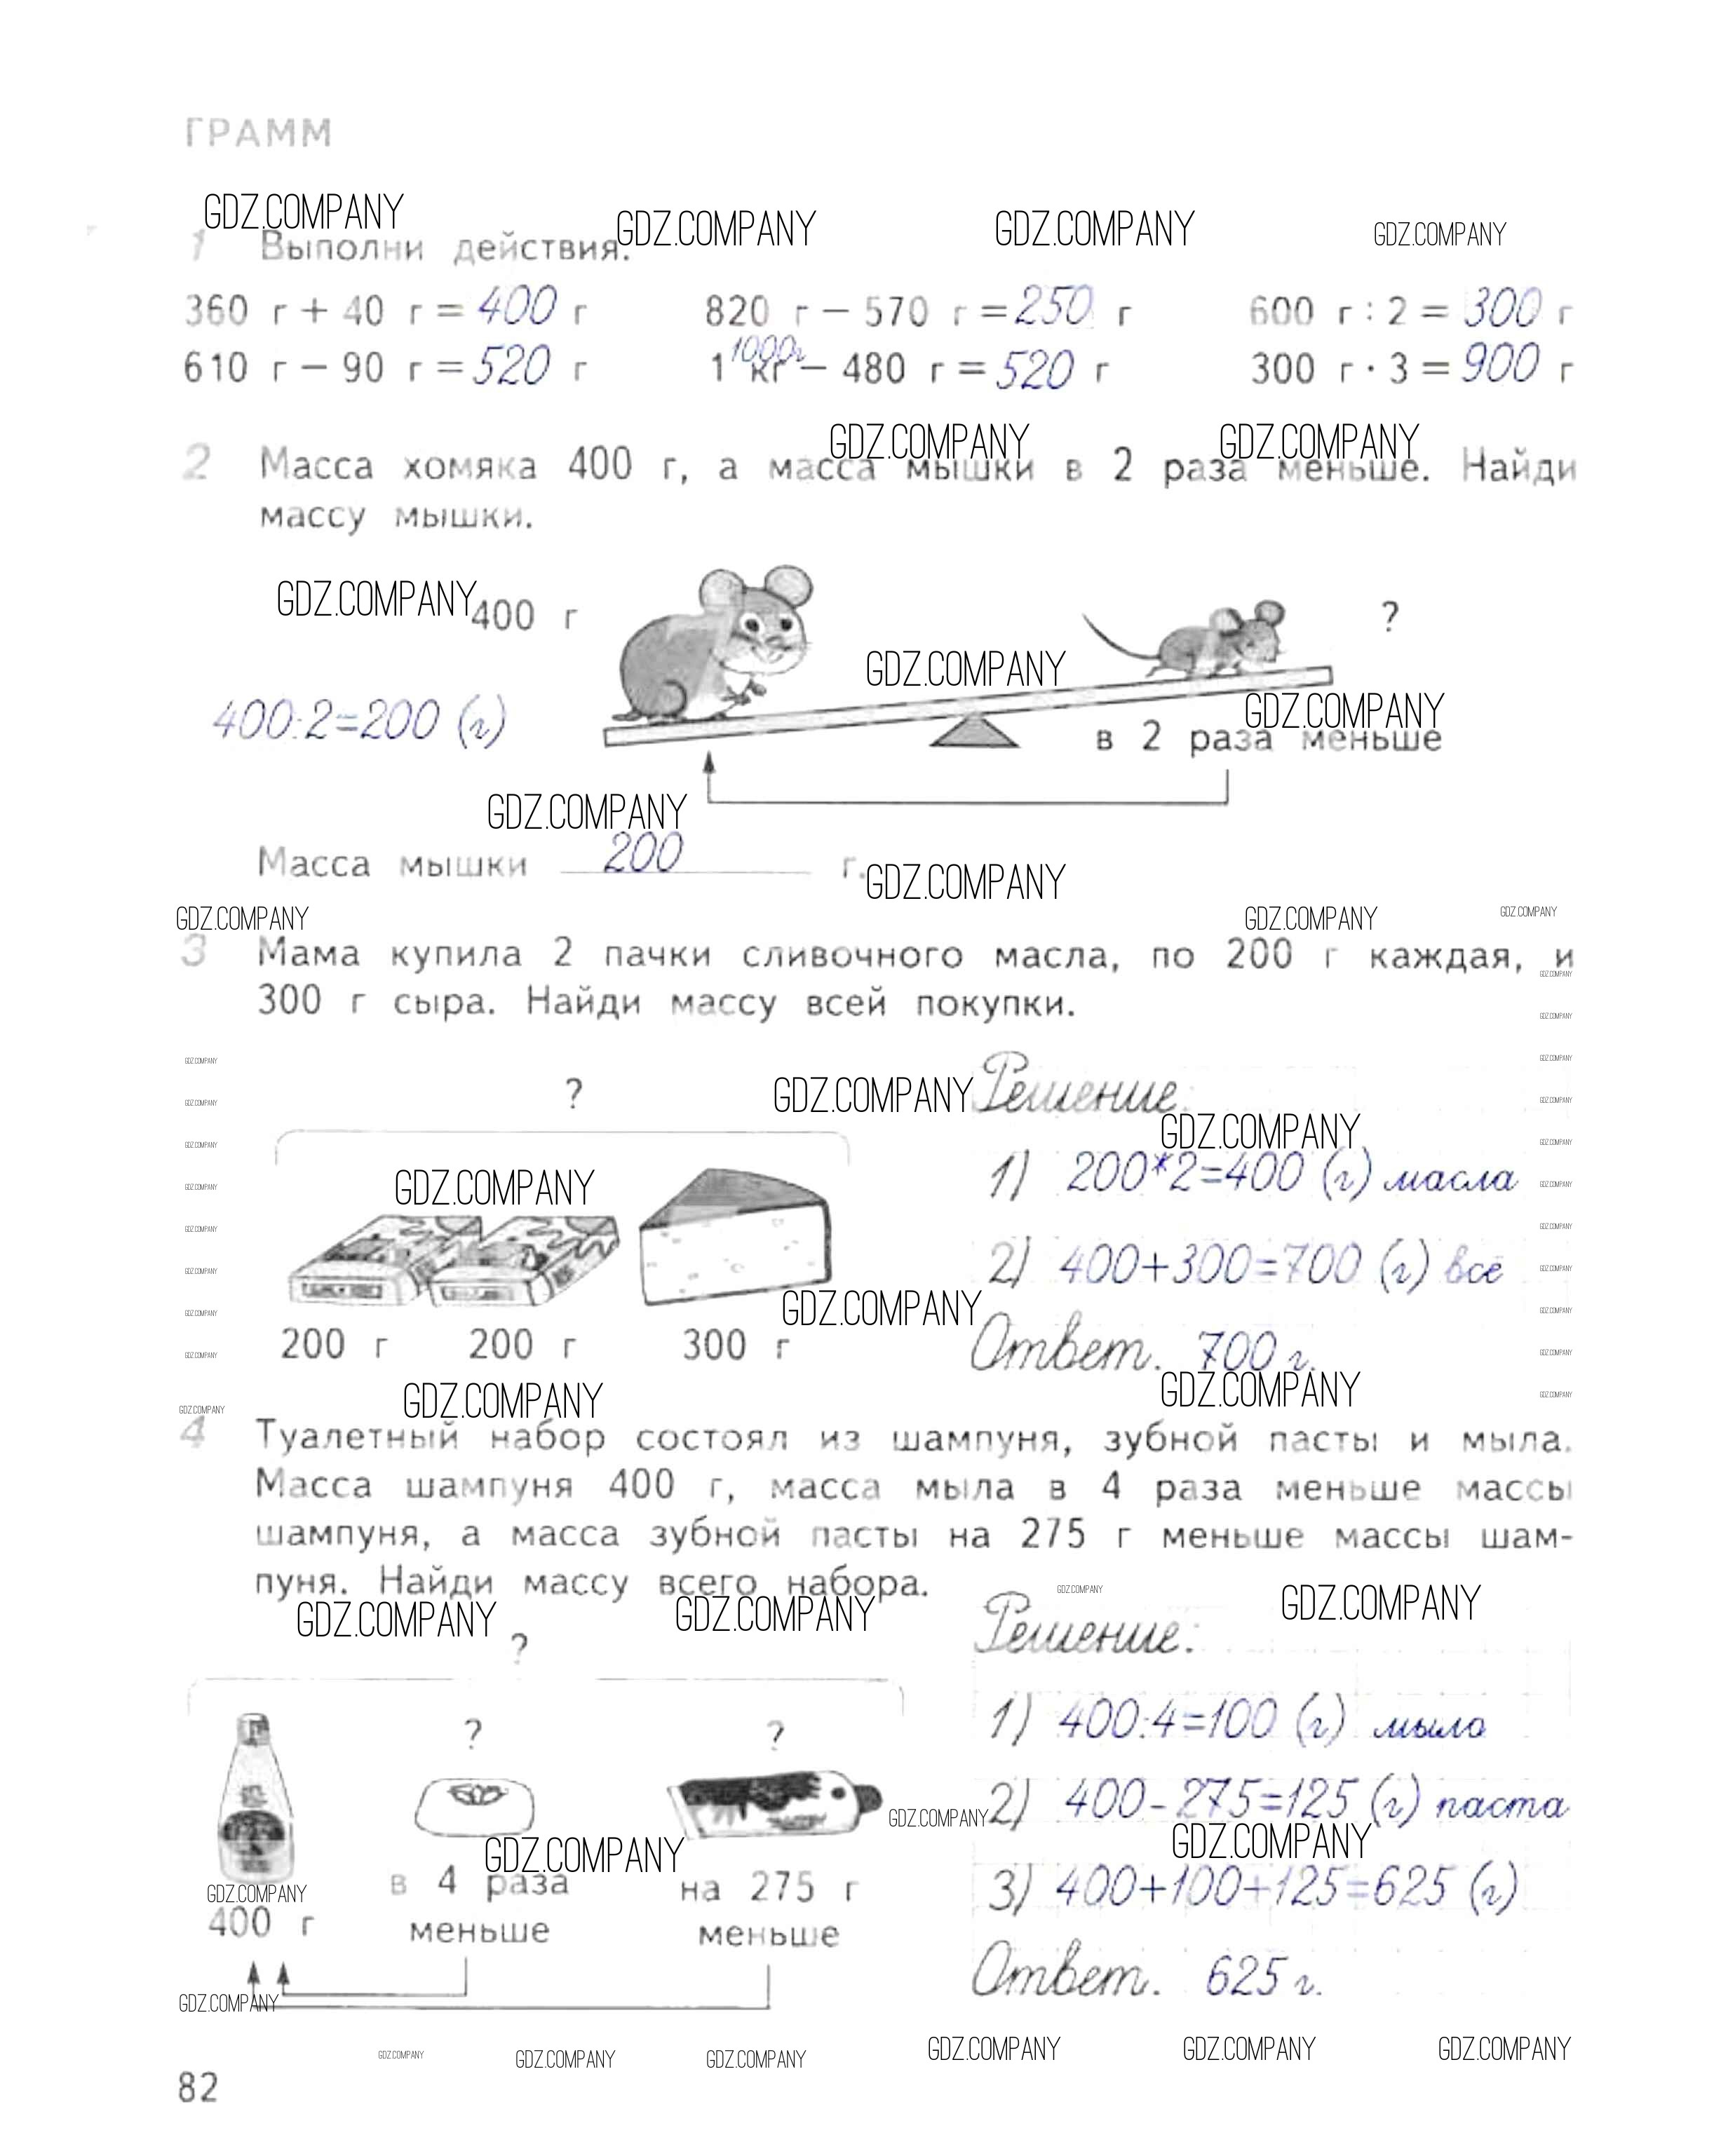 ГРАММ
GDZ.COMPANY GDZ.COMPANY GDZ.COMPANY GDZ.COMPANY
1 Выполни действия.
360 г + 40 г = 400 г 820 г − 570 г = 250 г 600 г : 2 = 300 г
1000г
610 г − 90 г = 520 г 1 кг − 480 г = 520 г 300 г · 3 = 900 г
GDZ.COMPANY GDZ.COMPANY
2 Масса хомяка 400 г, а масса мышки в 2 раза меньше. Найди
массу мышки.
GDZ.COMPANY 400 г ?
GDZ.COMPANY
GDZ.COMPANY
400:2=200 (г) в 2 раза меньше
GDZ.COMPANY
Масса мышки 200 г.
GDZ.COMPANY
GDZ.COMPANY GDZ.COMPANY GDZ.COMPANY
3 Мама купила 2 пачки сливочного масла, по 200 г каждая, и
GDZ.COMPANY
300 г сыра. Найди массу всей покупки.
GDZ.COMPANY
GDZ.COMPANY GDZ.COMPANY
? GDZ.COMPANY Решение.
GDZ.COMPANY GDZ.COMPANY
GDZ.COMPANY GDZ.COMPANY GDZ.COMPANY
1) 200*2=400 (г) масла
GDZ.COMPANY GDZ.COMPANY GDZ.COMPANY
GDZ.COMPANY GDZ.COMPANY
2) 400+300=700 (г) всё
GDZ.COMPANY GDZ.COMPANY
GDZ.COMPANY GDZ.COMPANY GDZ.COMPANY
200 г 200 г 300 г Ответ. 700 г.
GDZ.COMPANY GDZ.COMPANY
GDZ.COMPANY GDZ.COMPANY GDZ.COMPANY GDZ.COMPANY
4 Туалетный набор состоял из шампуня, зубной пасты и мыла.
Масса шампуня 400 г, масса мыла в 4 раза меньше массы
шампуня, а масса зубной пасты на 275 г меньше массы шам-
пуня. Найди массу всего набора.
GDZ.COMPANY GDZ.COMPANY GDZ.COMPANY GDZ.COMPANY
? Решение:
? ? 1) 400:4=100 (г) мыло
GDZ.COMPANY 2) 400-275=125 (г) паста
GDZ.COMPANY GDZ.COMPANY
GDZ.COMPANY в 4 раза на 275 г 3) 400+100+125=625 (г)
400 г меньше меньше
Ответ. 625 г.
GDZ.COMPANY
GDZ.COMPANY GDZ.COMPANY GDZ.COMPANY GDZ.COMPANY GDZ.COMPANY GDZ.COMPANY
82